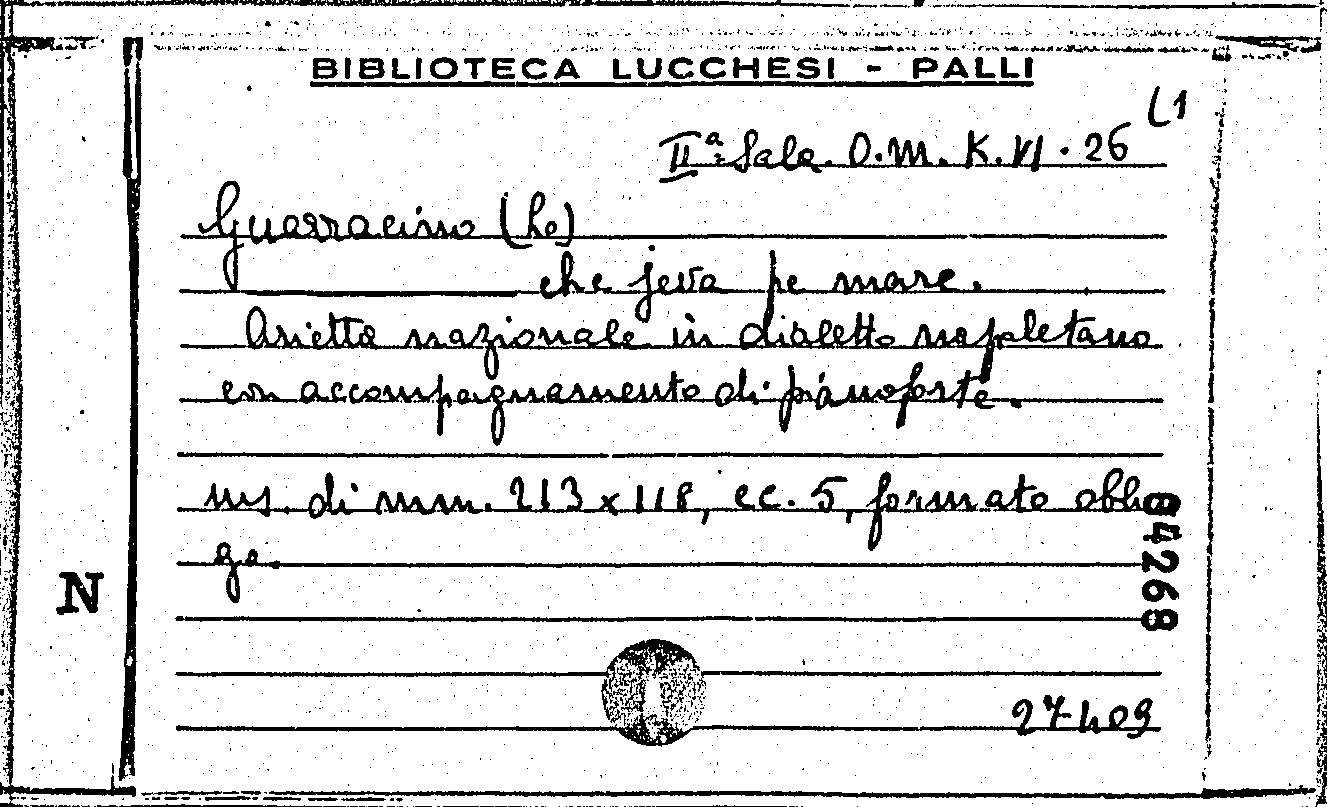 BIBLIOTECA LUCCHESI - PALLI
(1
IIª Sala. O.M. K.VI. 26
Guarracino (Lo)
che jeva pe mare.
Arietta nazionale in dialetto napoletano
con accompagnamento di pianoforte.
ms. di mm. 213 x 118, cc. 5, formato oblun
go.
84268
N
27409